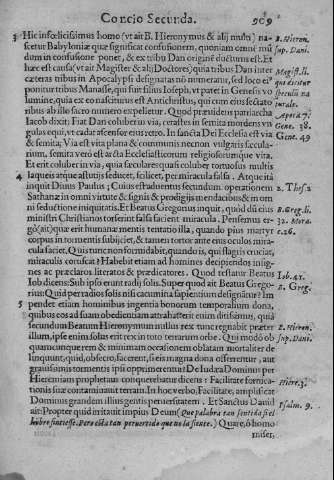 Concio Secunda. 909
3 Hic infœlicissimus homo (vt ait B. Hieronymus & alij multi) nascetur
Babyloniæ quæ significat confusionem, quoniam omne mũ
dum in confusione ponet, & ex tribu Dan originẽ ducturus est. Et
hæc est causa (vt ait Magister & alij Doctores) quia tribus Dan inter
cæteras tribus in Apocalypsi designatas nõ numeratur, sed loco ei⁹
ponitur tribus Manasse, qui fuit filius Ioseph, vt patet in Genesi vo
lumine, quia ex eo nasciturus est Antichristus, qui cum eius sectato
ribus ab illo sacro numero expelletur. Quod præuidens patriarcha
Iacob dixit: Fiat Dan coluber in via, cerastes in semita mordens vn
gulas equi, vt cadat ascensor eius retro. In sancta Dei Ecclesia est via
& semita; Via est vita plana & communis necnon vulgaris sæcularium,
semita verò est arcta Ecclesiasticorum religiosorumque vita.
Et erit coluber in via, quia sæculares quasi coluber tortuosus multis
4 laqueis atque astutijs seducet, falsis per miracula falsa. Atque ita
inquit Diuus Paulus; Cuius est aduentus secundum operationem
Sathanæ in omni virtute & signis & prodigijs mendacibus & in omni
seductione iniquitatis. Et Beatus Gregorius inquit, quòd dũ eius
ministri Christianos torserint falsa facient miracula. Pensemus ergò
(ait) quæ erit humanæ mentis tentatio illa, quando pius martyr
corpus in tormentis subijciet, & tamen tortor ante eius oculos miracula
faciet. Quis tunc non formidabit, quando is, qui flagris cruciat,
miraculis coruscat? Habebit etiam ad homines decipiendos insignes
ac præclaros literatos & prædicatores. Quod testatur Beatus
Iob dicens: Sub ipso erunt radij solis. Super quod ait Beatus Gregorius:
Quid per radios solis nisi acumina sapientium designãtur? Im
5 pendet etiam hominibus ingentia bonorum temporalium dona,
quibus eos ad suam obedientiam attrahat: erit enim ditissimus, quia
secundum Beatum Hieronymum nullus rex tunc regnabit præter
illum, ipse enim solus erit rex in toto terrarum orbe. Qui modò ob
quamcunque rem & minimam occasionem oblatam mortaliter de
linquunt, quid, obsecro, facerent, si eis magna dona offerrentur, aut
grauissimis tormentis ipsi opprimerentur? De Iudæa Dominus per
Hieremiam prophetam conquerebatur dicens: Facilitate fornicationis
suæ contaminauit terram. In hoc verbo, Facilitate, amplificat
Dominus grandem illius gentis peruersitatem. Et Sanctus Dauid
ait: Propter quid irritauit impius Deum (Que palabra tan sentida si el
hõbre sintiesse. Pero està tan peruertido que no la siente.) Quare, ô homo
miser,
B. Hieron.
sup. Dani.
Magist. li.
Apoca. 7.
Gene. 38.
Gene. 49
2. Thes. 2
B. Greg. li.
32. Mora.
c. 26.
Iob. 41.
B. Greg.
B. Hieron.
sup. Dani.
Hiere. 3.
Psalm. 9.